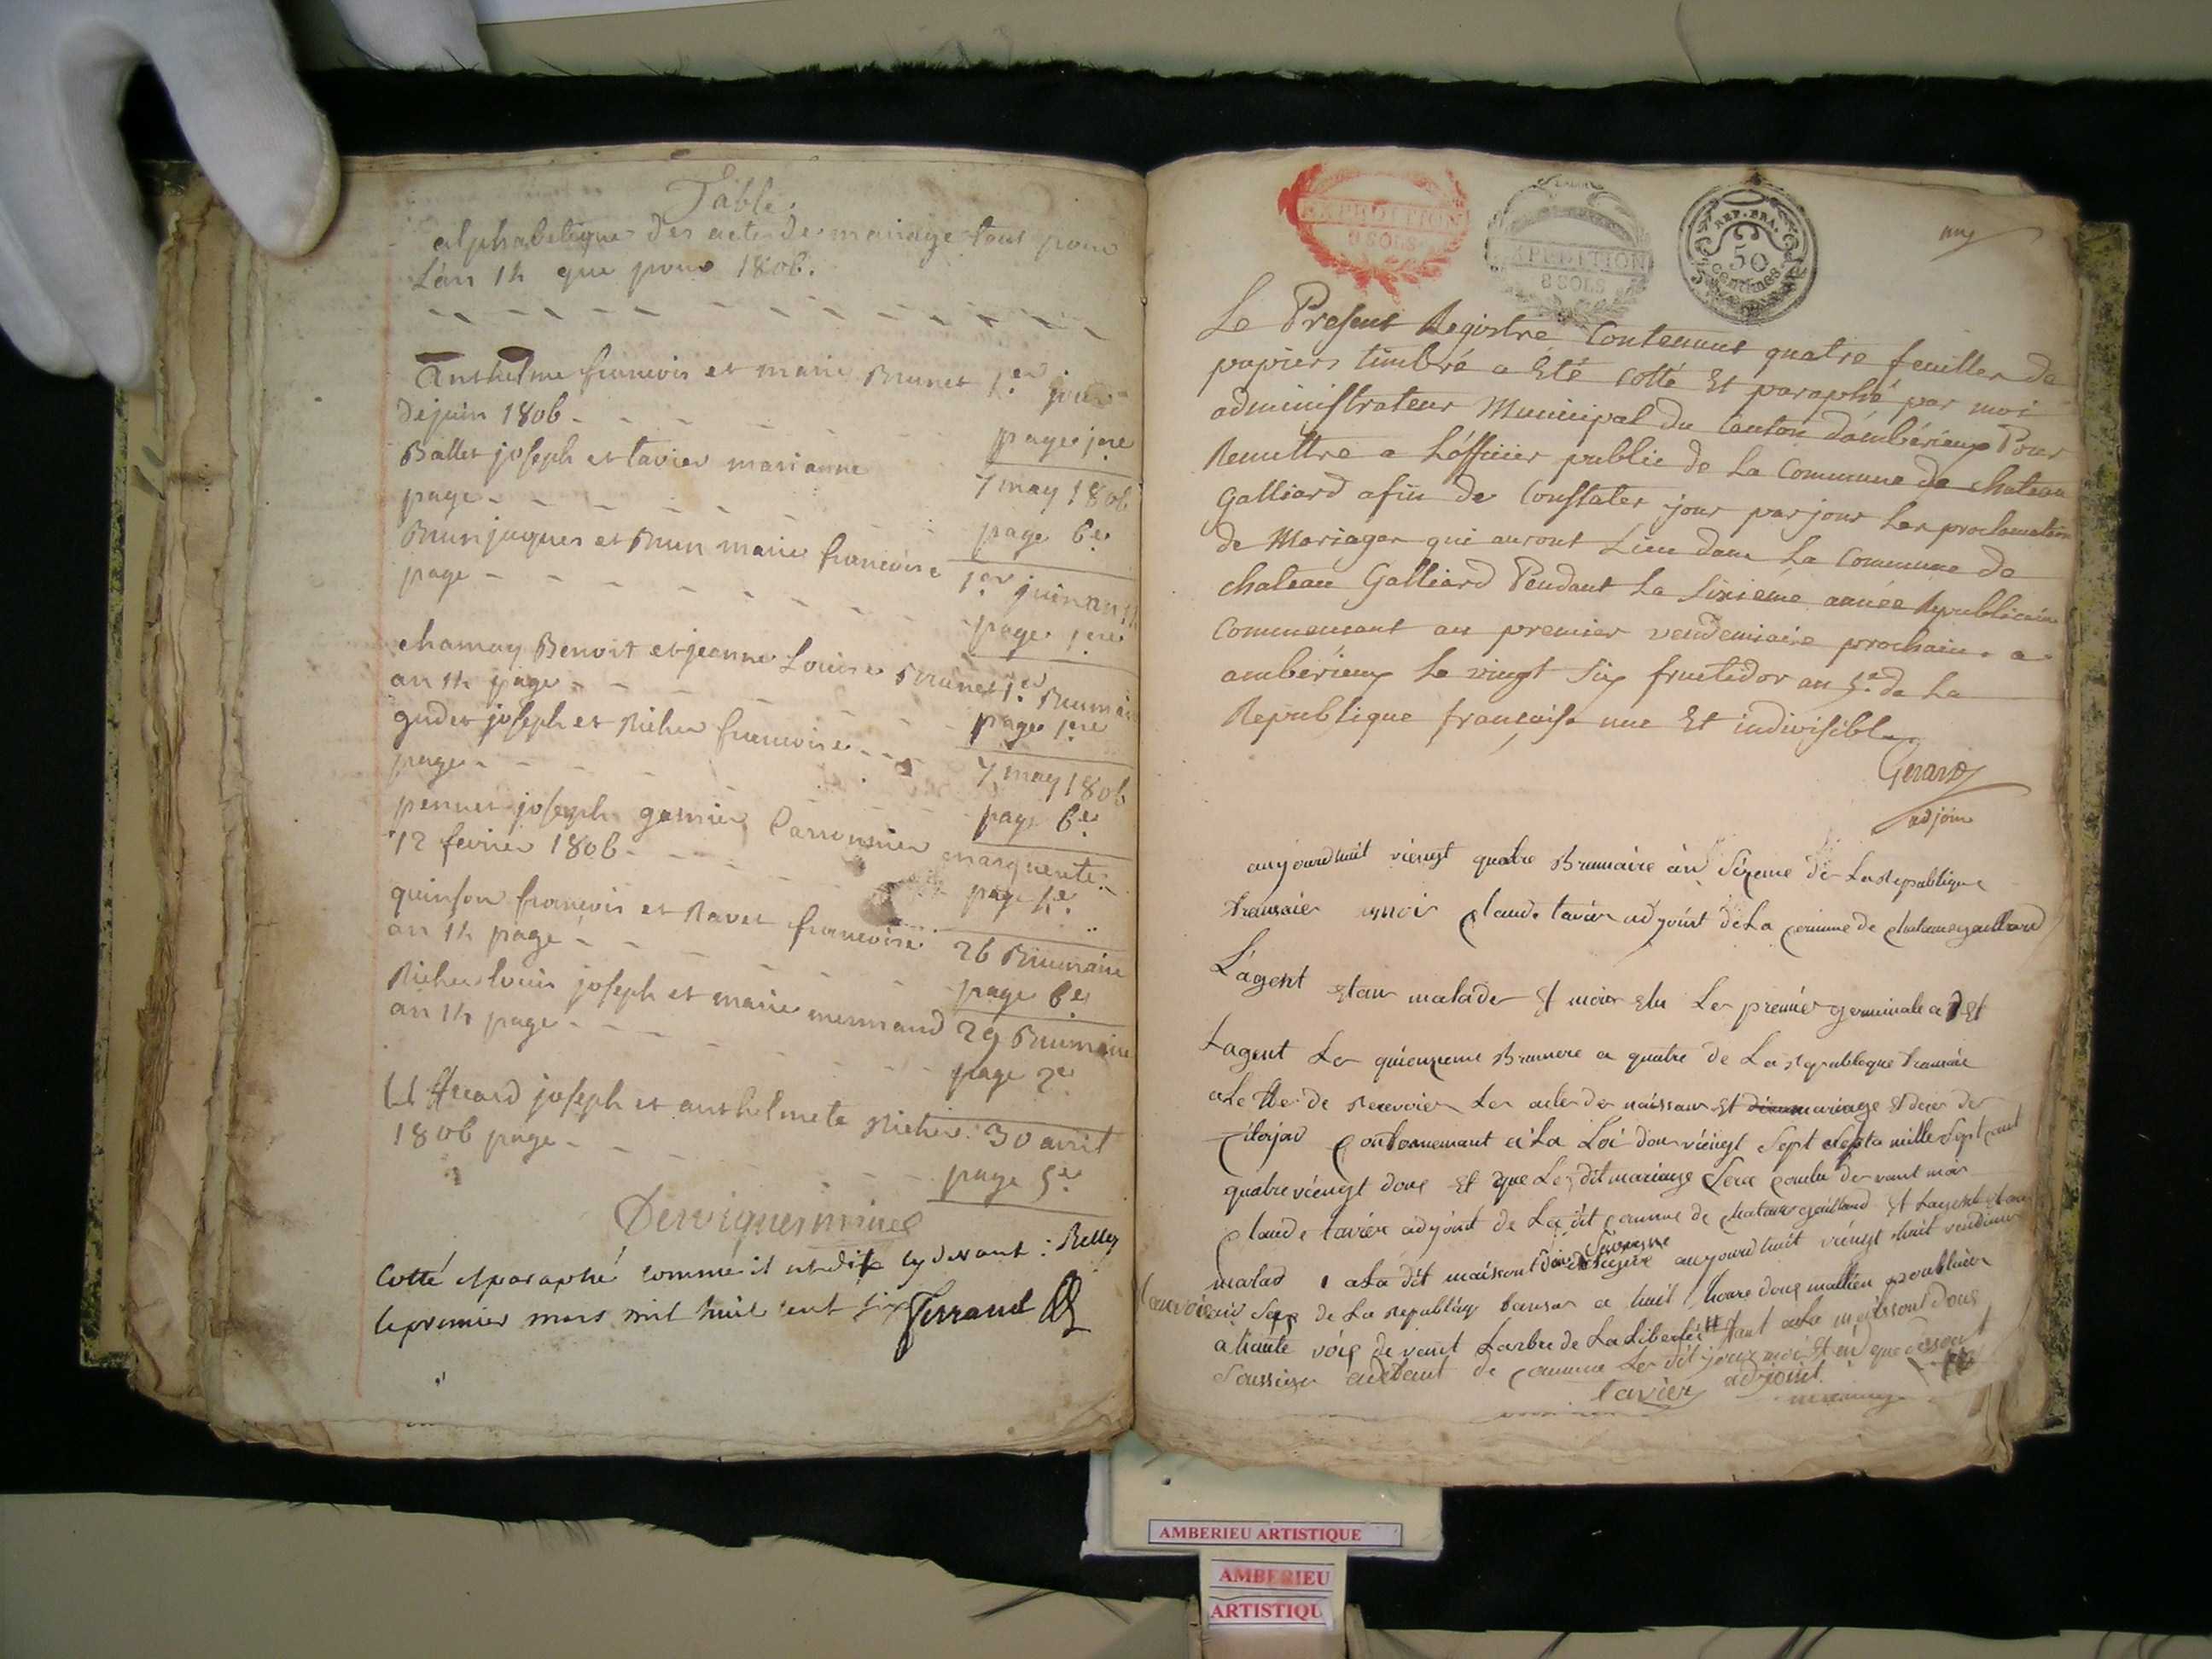 Table
alphabetique des actes de mariage tant pour
L'an 14 que pour 1806.
Anthelme francois et marie Brunet 1.er jour
de juin 1806 - page 1.ere
Ballet joseph et tavier marianne 7 may 1806
page - page 6.e
Brun jaques et Brun marie francoise 1.er juin an 14
page - page 1.ere
chamay Benoit et jeanne Louise Brunet 1.er Brumaire
an 14 page - page 1.ere
gudet joseph et Richer francoise - 7 may 1806
page - page 6.e
pennet joseph garnier marguerite
12 fevrier 1806 - page 4.e
quinson francois et Ravet francoise 26 Brumaire
an 14 page - page 6.e
Richer louis joseph et marie mermand 29 Brumaire
an 14 page - page 2.e
joseph et anthelmete Richer 30 avril
1806 page - page 5.e
Cotté et paraphé comme il est dit cy devant : Belley
le premier mars mil huit cent six Ferrand
EXPEDITION
8 SOLS
EXPEDITION
8 SOLS
REP. FRA.
50
centimes
Le Present Registre Contenant quatre feuilles de
papiers timbré a Eté cotté Et paraphé par moi
administrateur Municipal du Canton dambérieux Pour
Remettre a L'officier public de La Commune de chateau
Galliard afin de Constater jour par jour Les proclamation
de Mariages qui auront Lieu dans La Commune de
chateau Galliard Pendant La Sixieme année Republicaine
Commencant au premier vendemiaire prochain. a
amberieux Le vingt Six fructidor an 5.e de La
Republique francaise une Et indivisible
Gerard
adjoin
aujourdhuit viengt quatre Brumaire an Sizeme de La Republique
transaies moir Claude tavier adjoint de La comune de chateaugalliard
L'agent etan malade Et moir elu Le premier germinale a 5 Et
Lagent Le quienzeme Brumere a quatre de La Republeque
de Recevoier Les actes de naissans Et mariage Et deces des
conformemant a La Loi dou viengt Sept Septa mille Sept cent
quatre viengt douz Et que Le dit mariage Sera devant moi
Claude tavier adjoint de La dit comune de chateaugailliard Et Lagent etan
malad a La dit maisont aujourdhuit viengt huit vendimer
de La Republiq a huit houre douz mattien
a haute voie devant Larbre de La Liberte
de comune Les dit jour moi Et an que dessout
tavier adjoint
AMBERIEU ARTISTIQUE
AMBERIEU
ARTISTIQU